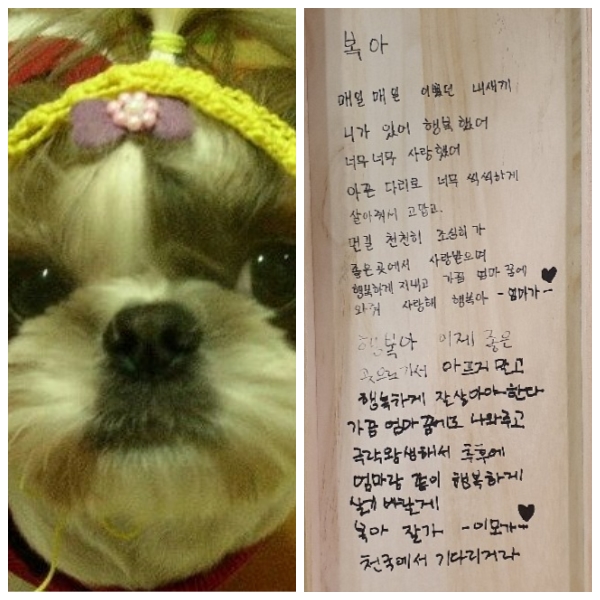 복아
매일 매일 이뻤던 내새끼
니가 있어 행복했어
너무너무 사랑했어
아픈 다리로 너무 씩씩하게
살아줘서 고맙고.
먼길 천천히 조심히가
좋은곳에서 사랑받으며
행복하게 지내고 가끔 엄마 꿈에
와줘 사랑해 행복아 -엄마가-
행복아 이제 좋은
곳으로가서 아프지말고
행복하게 잘살아야한다
가끔 엄마꿈에도 나와주고
극락왕생해서 추후에
엄마랑 같이 행복하게
살기 바랄게
복아 잘가 -이모가-
천국에서 기다리거라